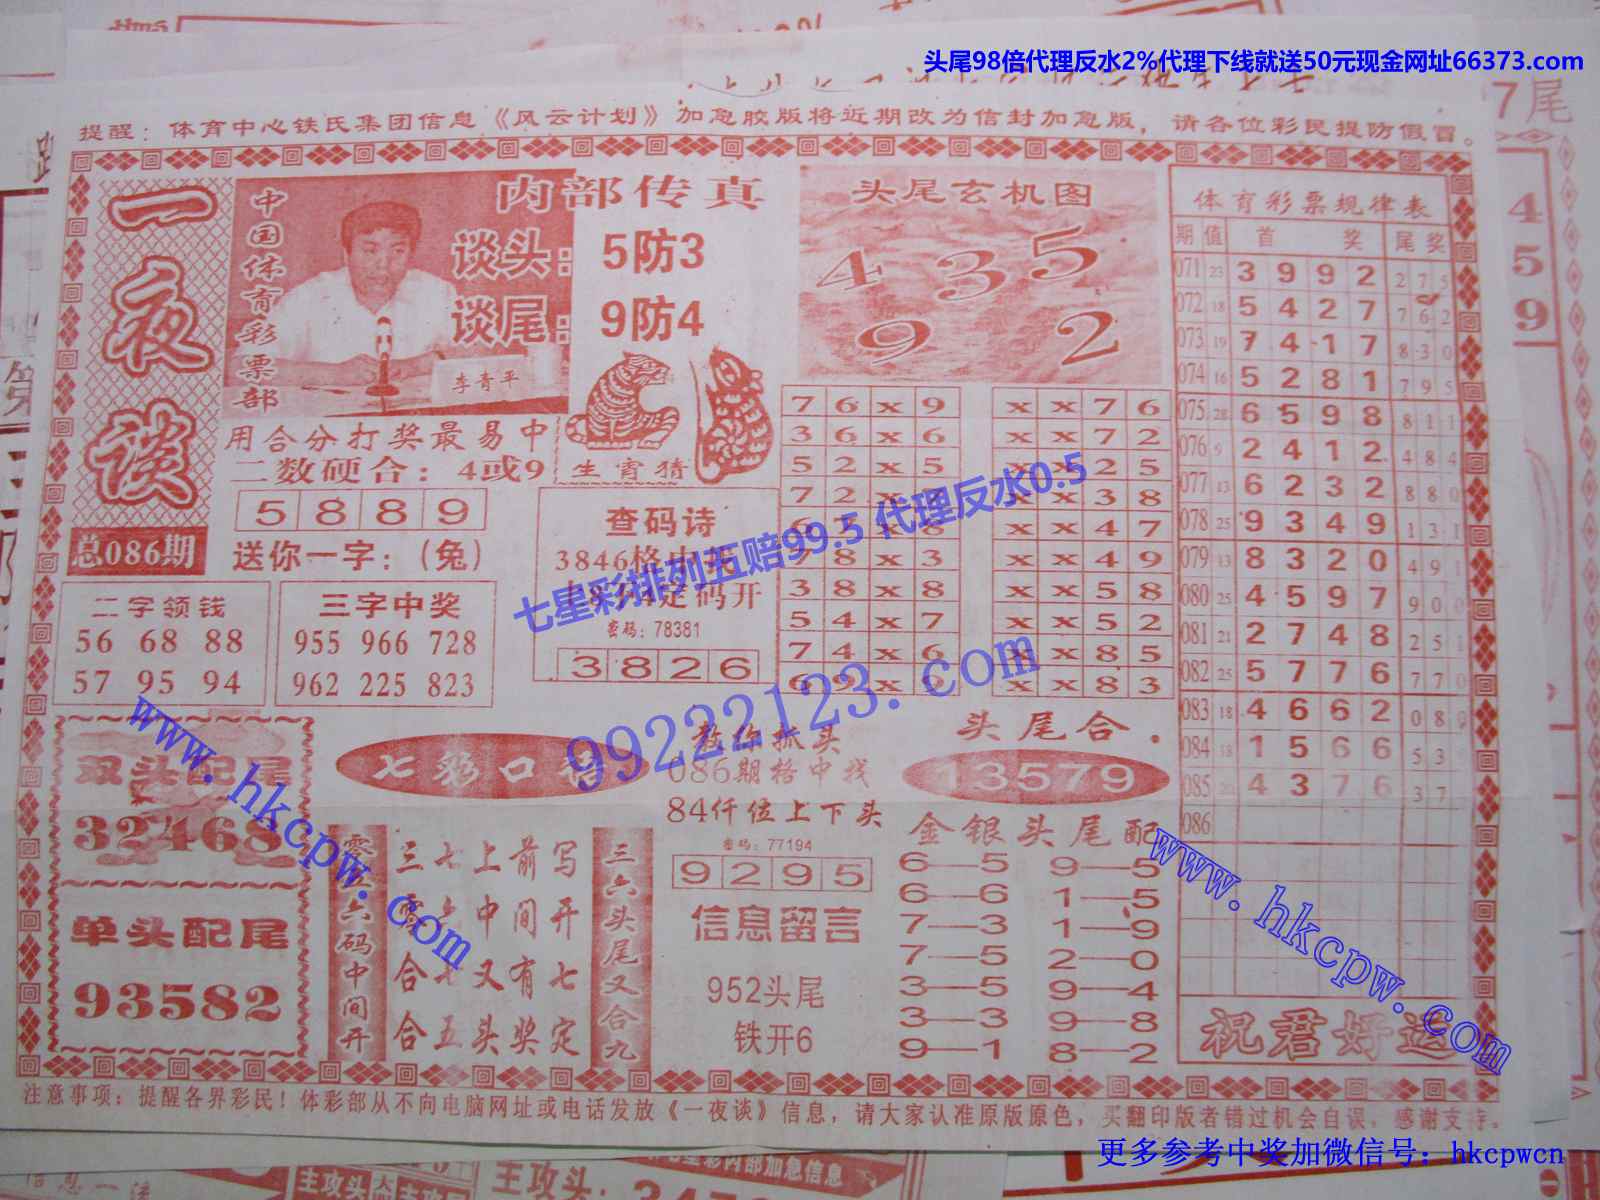 头尾98倍代理反水2%代理下线就送50元现金网址66373.com
7尾
4
5
9
提醒：体育中心铁氏集团信息《风云计划》加急胶版将近期改为信封加急版，请各位彩民提防假冒。
一夜谈
总086期
中国体育彩票部
内部传真
谈头：5防3
谈尾：9防4
李青平
用合分打奖最易中
二数硬合：4或9
5889
送你一字：（兔）
生肖猜
头尾玄机图
4 3 5
9 2
体育彩票规律表
期 值 首 奖 尾奖
071 23 3 9 9 2 2 7 5
072 18 5 4 2 7 7 6 2
073 19 7 4 1 7 8 3 0
074 16 5 2 8 1 7 9 5
075 28 6 5 9 8 8 1 1
076 9 2 4 1 2 4 8 4
077 13 6 2 3 2 8 8 0
078 25 9 3 4 9 1 3 1
079 13 8 3 2 0 4 9 1
080 25 4 5 9 7 9 0 0
081 21 2 7 4 8 2 5 1
082 25 5 7 7 6 7 7 0
083 18 4 6 6 2 0 8
084 18 1 5 6 6 5 3
085 20 4 3 7 6 3 7
086
祝君好运
二字领钱
56 68 88
57 95 94
三字中奖
955 966 728
962 225 823
查码诗
3846格中
定码开
密码：78381
3826
7 6 x 9
3 6 x 6
5 2 x 5
7 2 x
x 6
9 8 x 3
3 8 x 8
5 4 x 7
7 4 x 6
6 9 x 6
x x 7 6
x x 7 2
x x 2 5
x x 3 8
x x 4 7
x x 4 9
x x 5 8
x x 5 2
x x 8 5
x x 8 3
七星彩排列五赔99.5 代理反水0.5
99222123.com
www.hkcpw.com
双头配尾
32468
单头配尾
93582
七彩口
零六码中间开
三七上前写
零六中间开
合七又有七
合五头奖定
三六头尾又合九
教你抓头
086期格中找
84仟位上下头
密码：77194
9295
信息留言
952头尾
铁开6
头尾合
13579
金银头尾配
6—5 9—5
6—6 1—5
7—3 1—9
7—5 2—0
3—5 9—4
3—3 9—8
9—1 8—2
www.hkcpw.com
注意事项：提醒各界彩民！体彩部从不向电脑网址或电话发放《一夜谈》信息，请大家认准原版原色，买翻印版者错过机会自误，感谢支持。
更多参考中奖加微信号：hkcpwcn
主攻头
主攻头：
内部加急信息